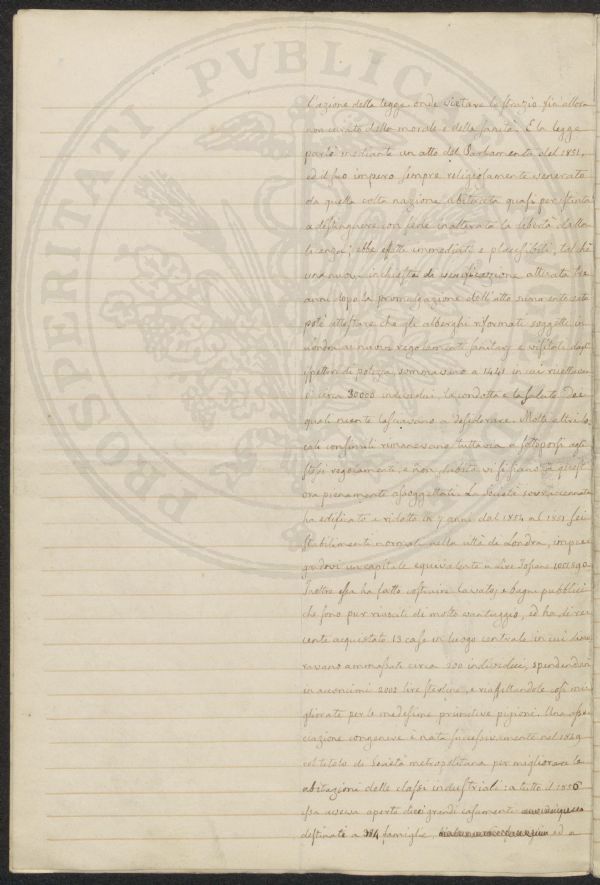 PROSPERITATI PUBLICAE
l'azione della legge onde vietare lo strazio fin'allora
non curato della morale e della sanità. E la legge
parlò mediante un atto del Parlamento del 1851,
ed il suo impero sempre religiosamente venerato
da quella colta nazione abituata quasi per istinto
a distinguere con fede inalterata la libertà dalla
licenza, ebbe effetti immediati e plausibili, talchè
una nuova inchiesta di verificazione attivata tre
anni dopo la promulgazione dell'atto rammentato
potè attestare che gli alberghi riformati soggetti in
Londra ai nuovi regolamenti sanitarj e visitati dagli
ispettori di polizia, sommavano a 1441 in cui ricettavan
si circa 30000 individui la condotta e la salute dei
quali niente lasciavano a desiderare. Molti altri lo
cali consimili rimanevano tuttavia a sottoporsi agli
stessi regolamenti, e non dubito vi si siano a quest'
ora pienamente assoggettati. La Società sovraccennata
ha edificato e ridotto in 7 anni dal 1844 al 1851 sei
stabilimenti normali nella città di Londra, impie
gandovi un capitale equivalente a Lire Toscane
Inoltre essa ha fatto costruire lavatoj e bagni pubblici
che sono pur riusciti di molto vantaggio, ed ha di re
cente acquistato 13 case in luogo centrale in cui dimo
ravano ammassati circa 200 individui, spendendovi
in acconcimi 2000 lire sterline, e riaffittandole così mi
gliorate per le medesime primitive pigioni. Una asso
ciazione congenere è nata successivamente nel 1849
col titolo di Società metropolitana per migliorare le
abitazioni delle classi industriali: a tutto il 1850
essa aveva aperte dieci grandi casamenti
destinati a famiglie, ed a